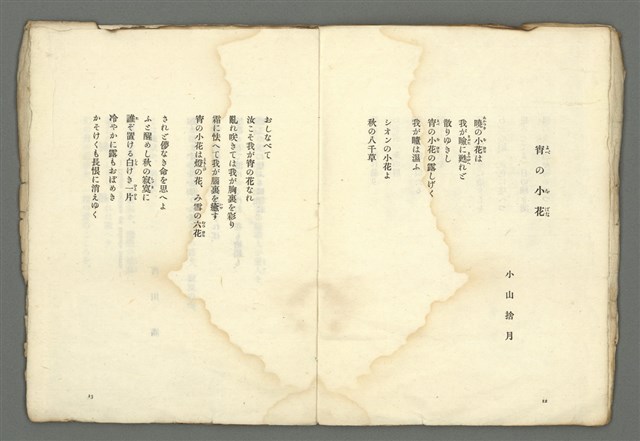 宵の小花
小山捨月
曉の小花は
我が瞳に甦れど
散りゆきし
宵の小花の露しげく
我が瞳は濕ふ
シオンの小花よ
秋の八千草
おしなべて
汝こそ我が宵の花なれ
亂れ咲きては我が胸裏を彩り
霜に怯へて我が腦裏を癒す
宵の小花は燈の花、み雪の六花
されど儚なき命を思へよ
ふと醒めし秋の寂寞に
誰ぞ置ける白けき一片
冷やかに露もおぼめき
かそけくも長恨に消えゆく